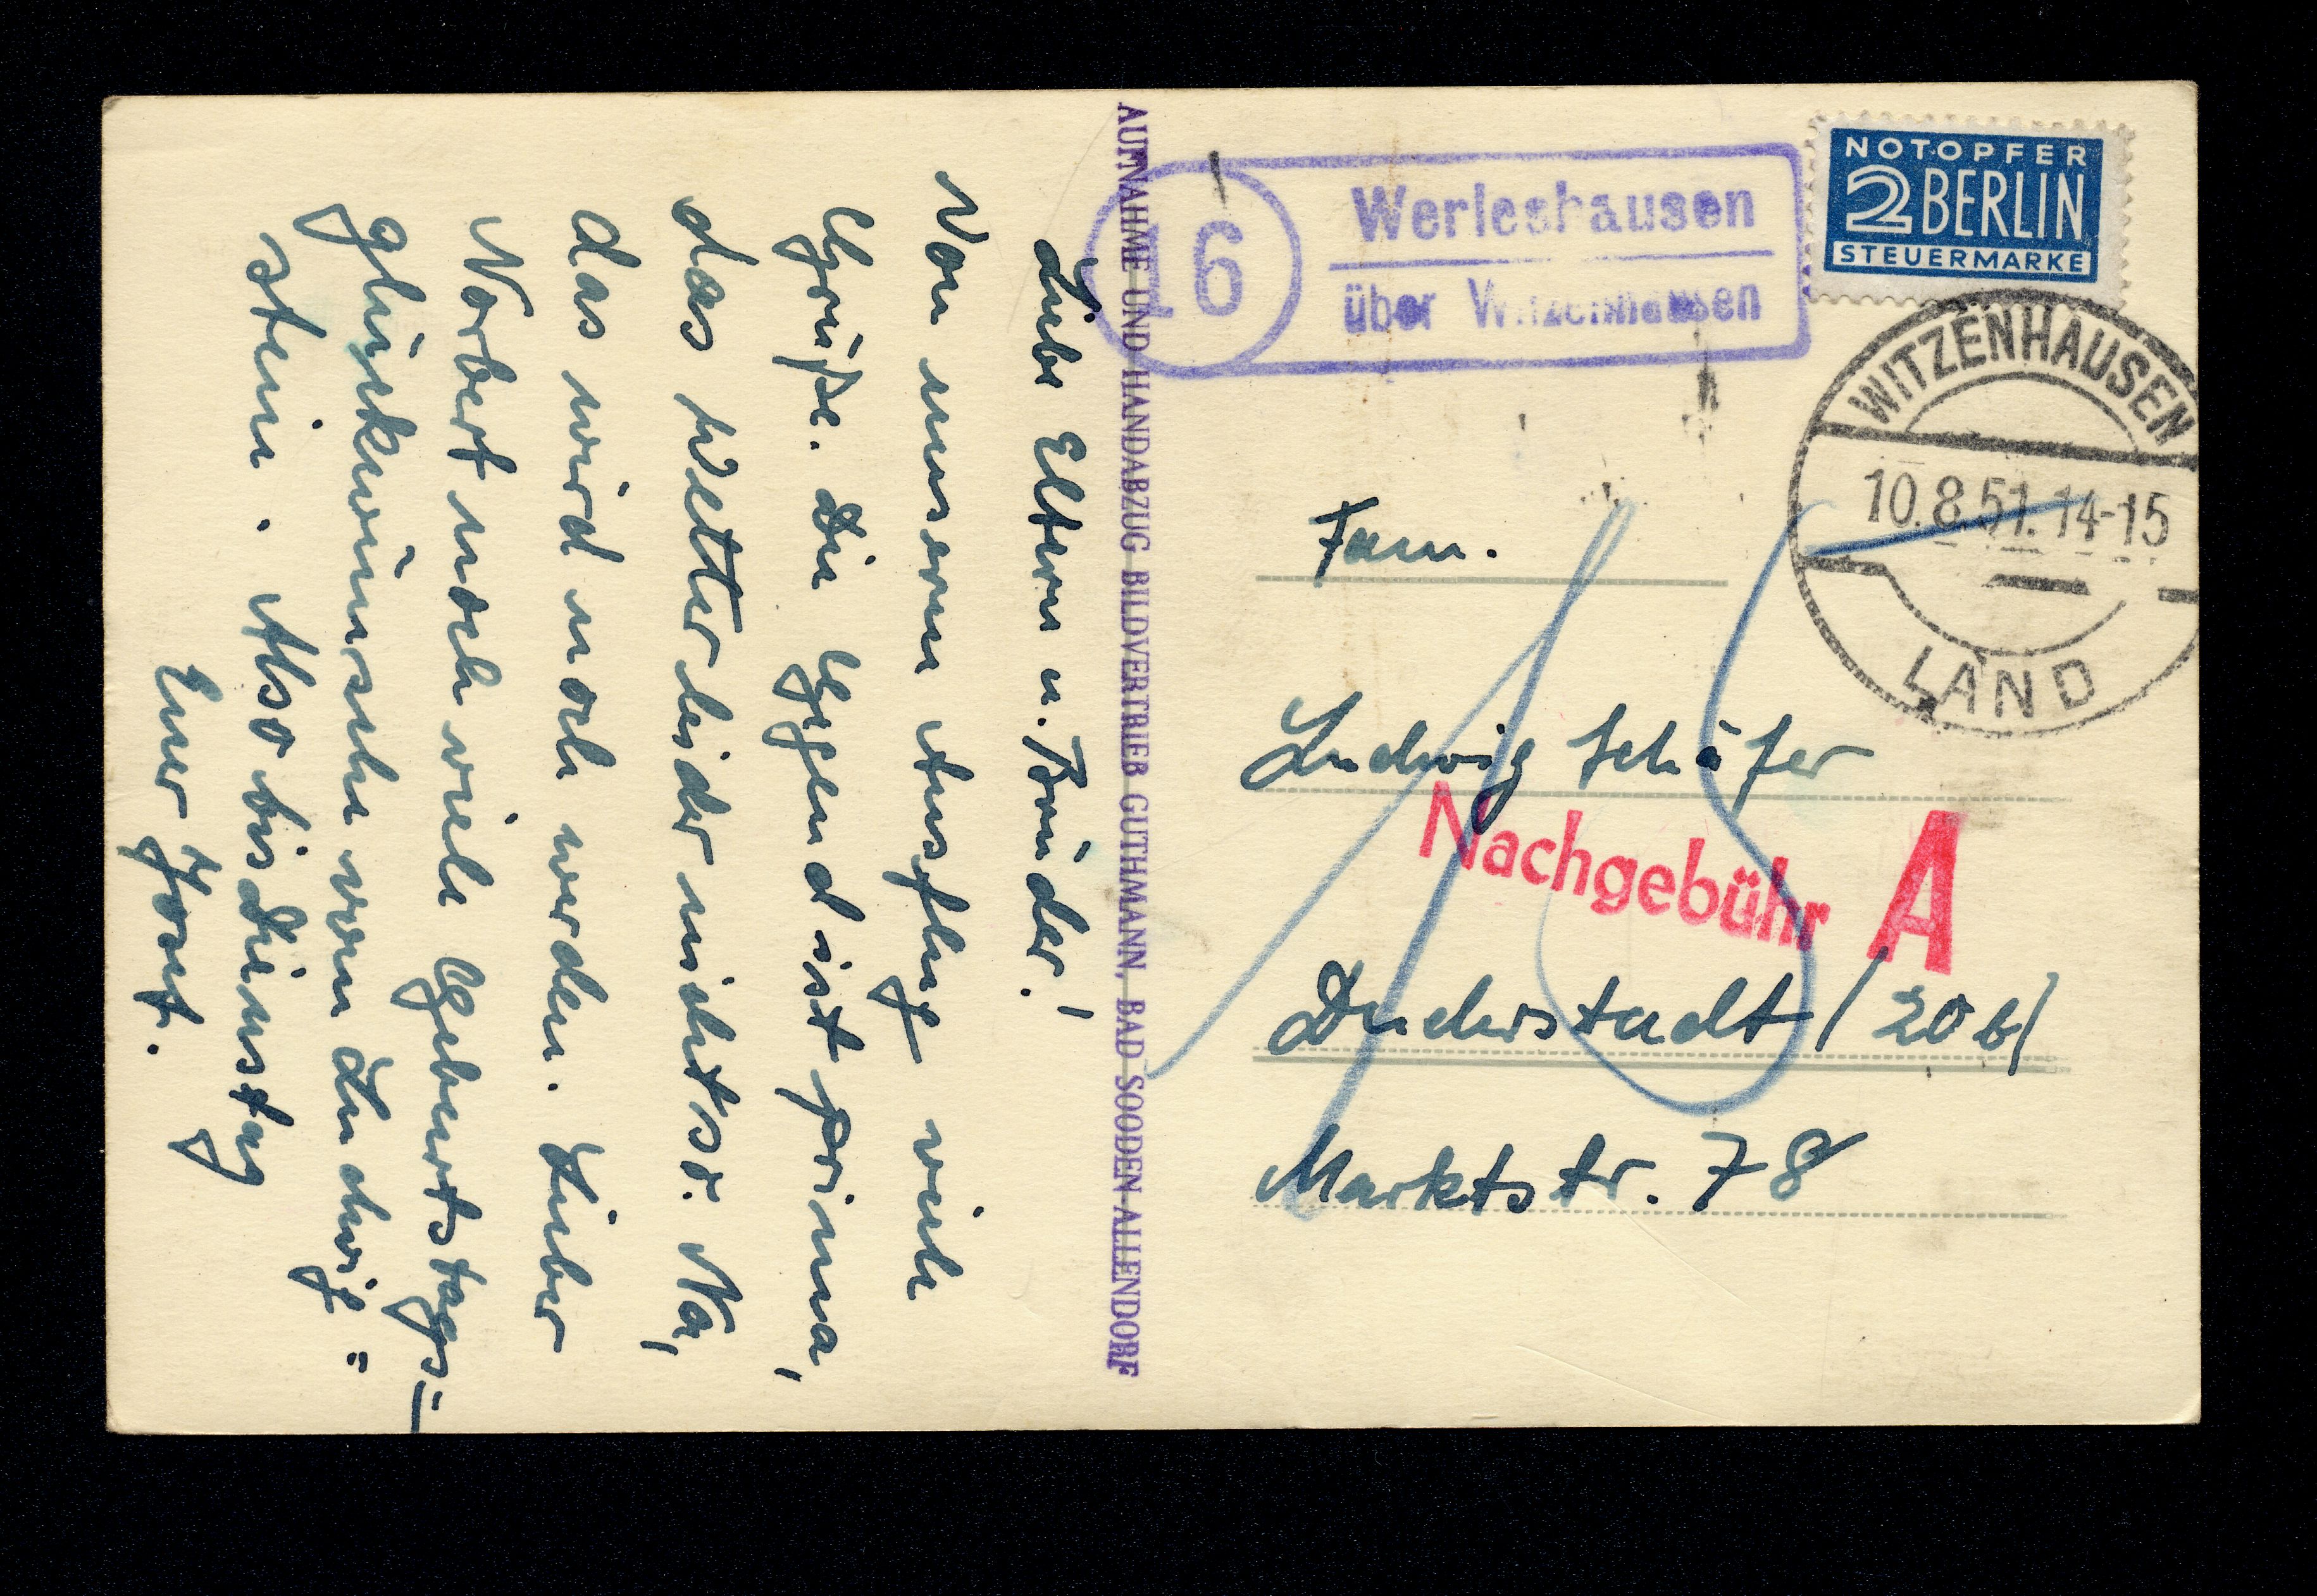 Liebe Eltern u. Brüder!
Von unserm Ausflug viele
Grüße. Die Gegend ist prima,
das Wetter leider nicht so. Na,
das wird noch werden. Lieber
Norbert noch viele Geburtstags=
glückwünsche vom Ludwig=
stein. Also bis Dienstag
Euer Jost.
AUFNAHME UND HANDABZUG BILDVERTRIEB GUTHMANN, BAD SOODEN-ALLENDORF
16
Werleshausen
über Witzenhausen
NOTOPFER
2 BERLIN
STEUERMARKE
WITZENHAUSEN
10.8.51.14-15
LAND
Fam.
Ludwig Schäfer
Nachgebühr A
15
Duderstadt /20b/
Marktstr. 78